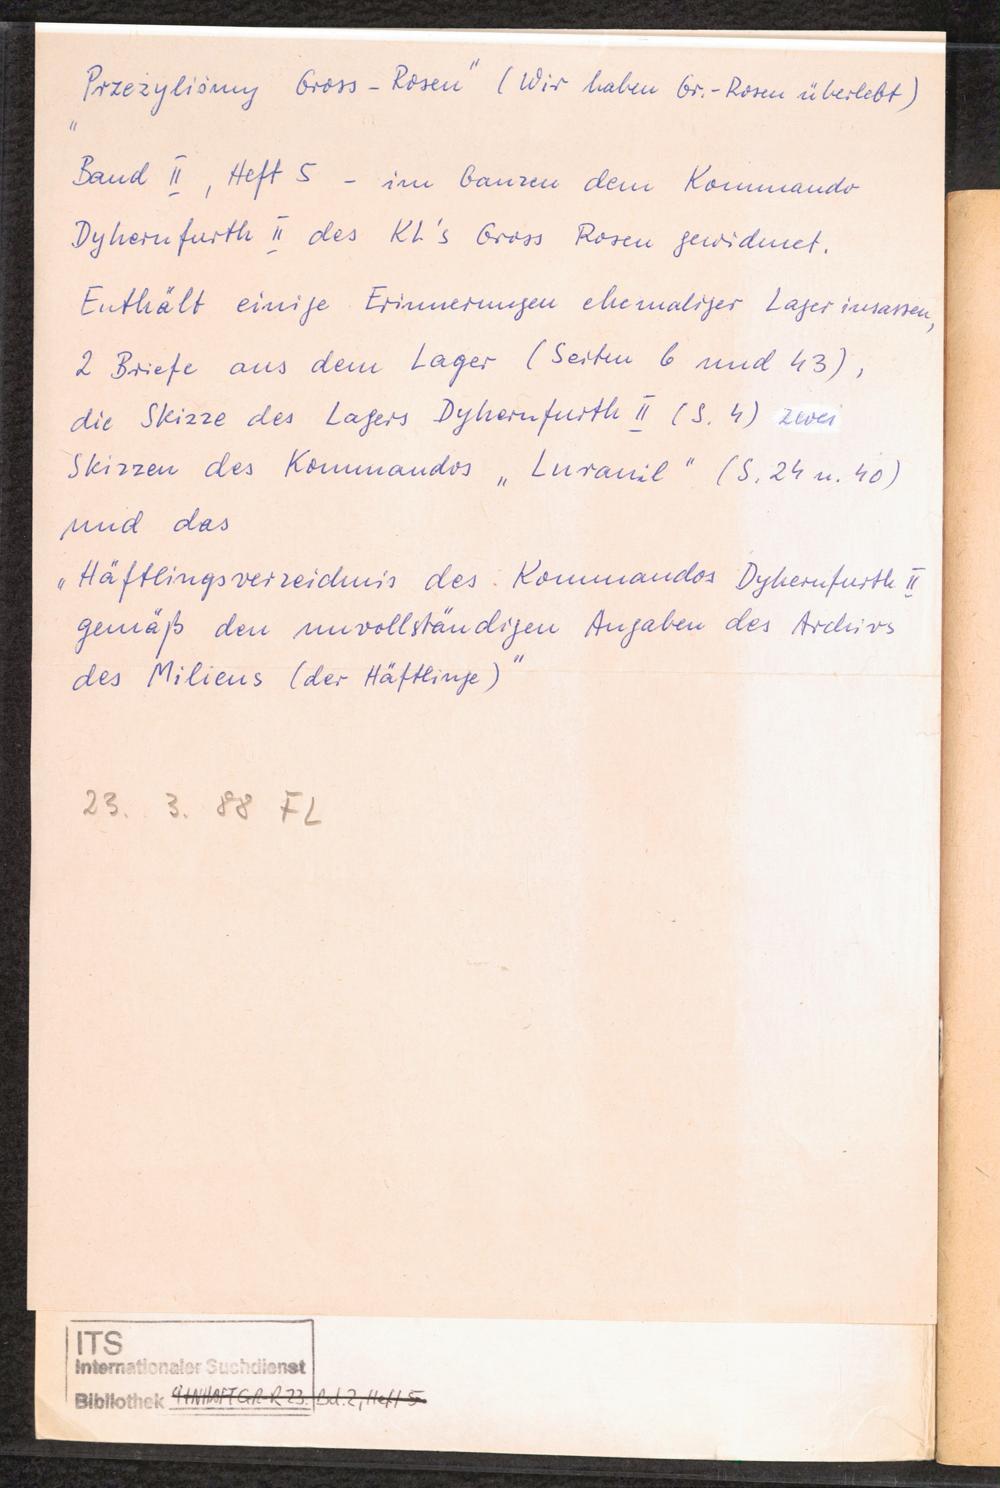 „Przeżyliśmy Gross-Rosen" (Wir haben Gr.-Rosen überlebt)
Band II, Heft 5 - im Ganzen dem Kommando
Dyhernfurth II des KL's Gross Rosen gewidmet.
Enthält einige Erinnerungen ehemaliger Lagerinsassen,
2 Briefe aus dem Lager (Seiten 6 und 43),
die Skizze des Lagers Dyhernfurth II (S. 4) zwei
Skizzen des Kommandos „Luranil" (S. 24 u. 40)
und das
„Häftlingsverzeichnis des Kommandos Dyhernfurth II
gemäß den unvollständigen Angaben des Archivs
des Milieus (der Häftlinge)"
23. 3. 88 FL
ITS
Internationaler Suchdienst
Bibliothek GR-R 23. Bd. 2, Heft 5